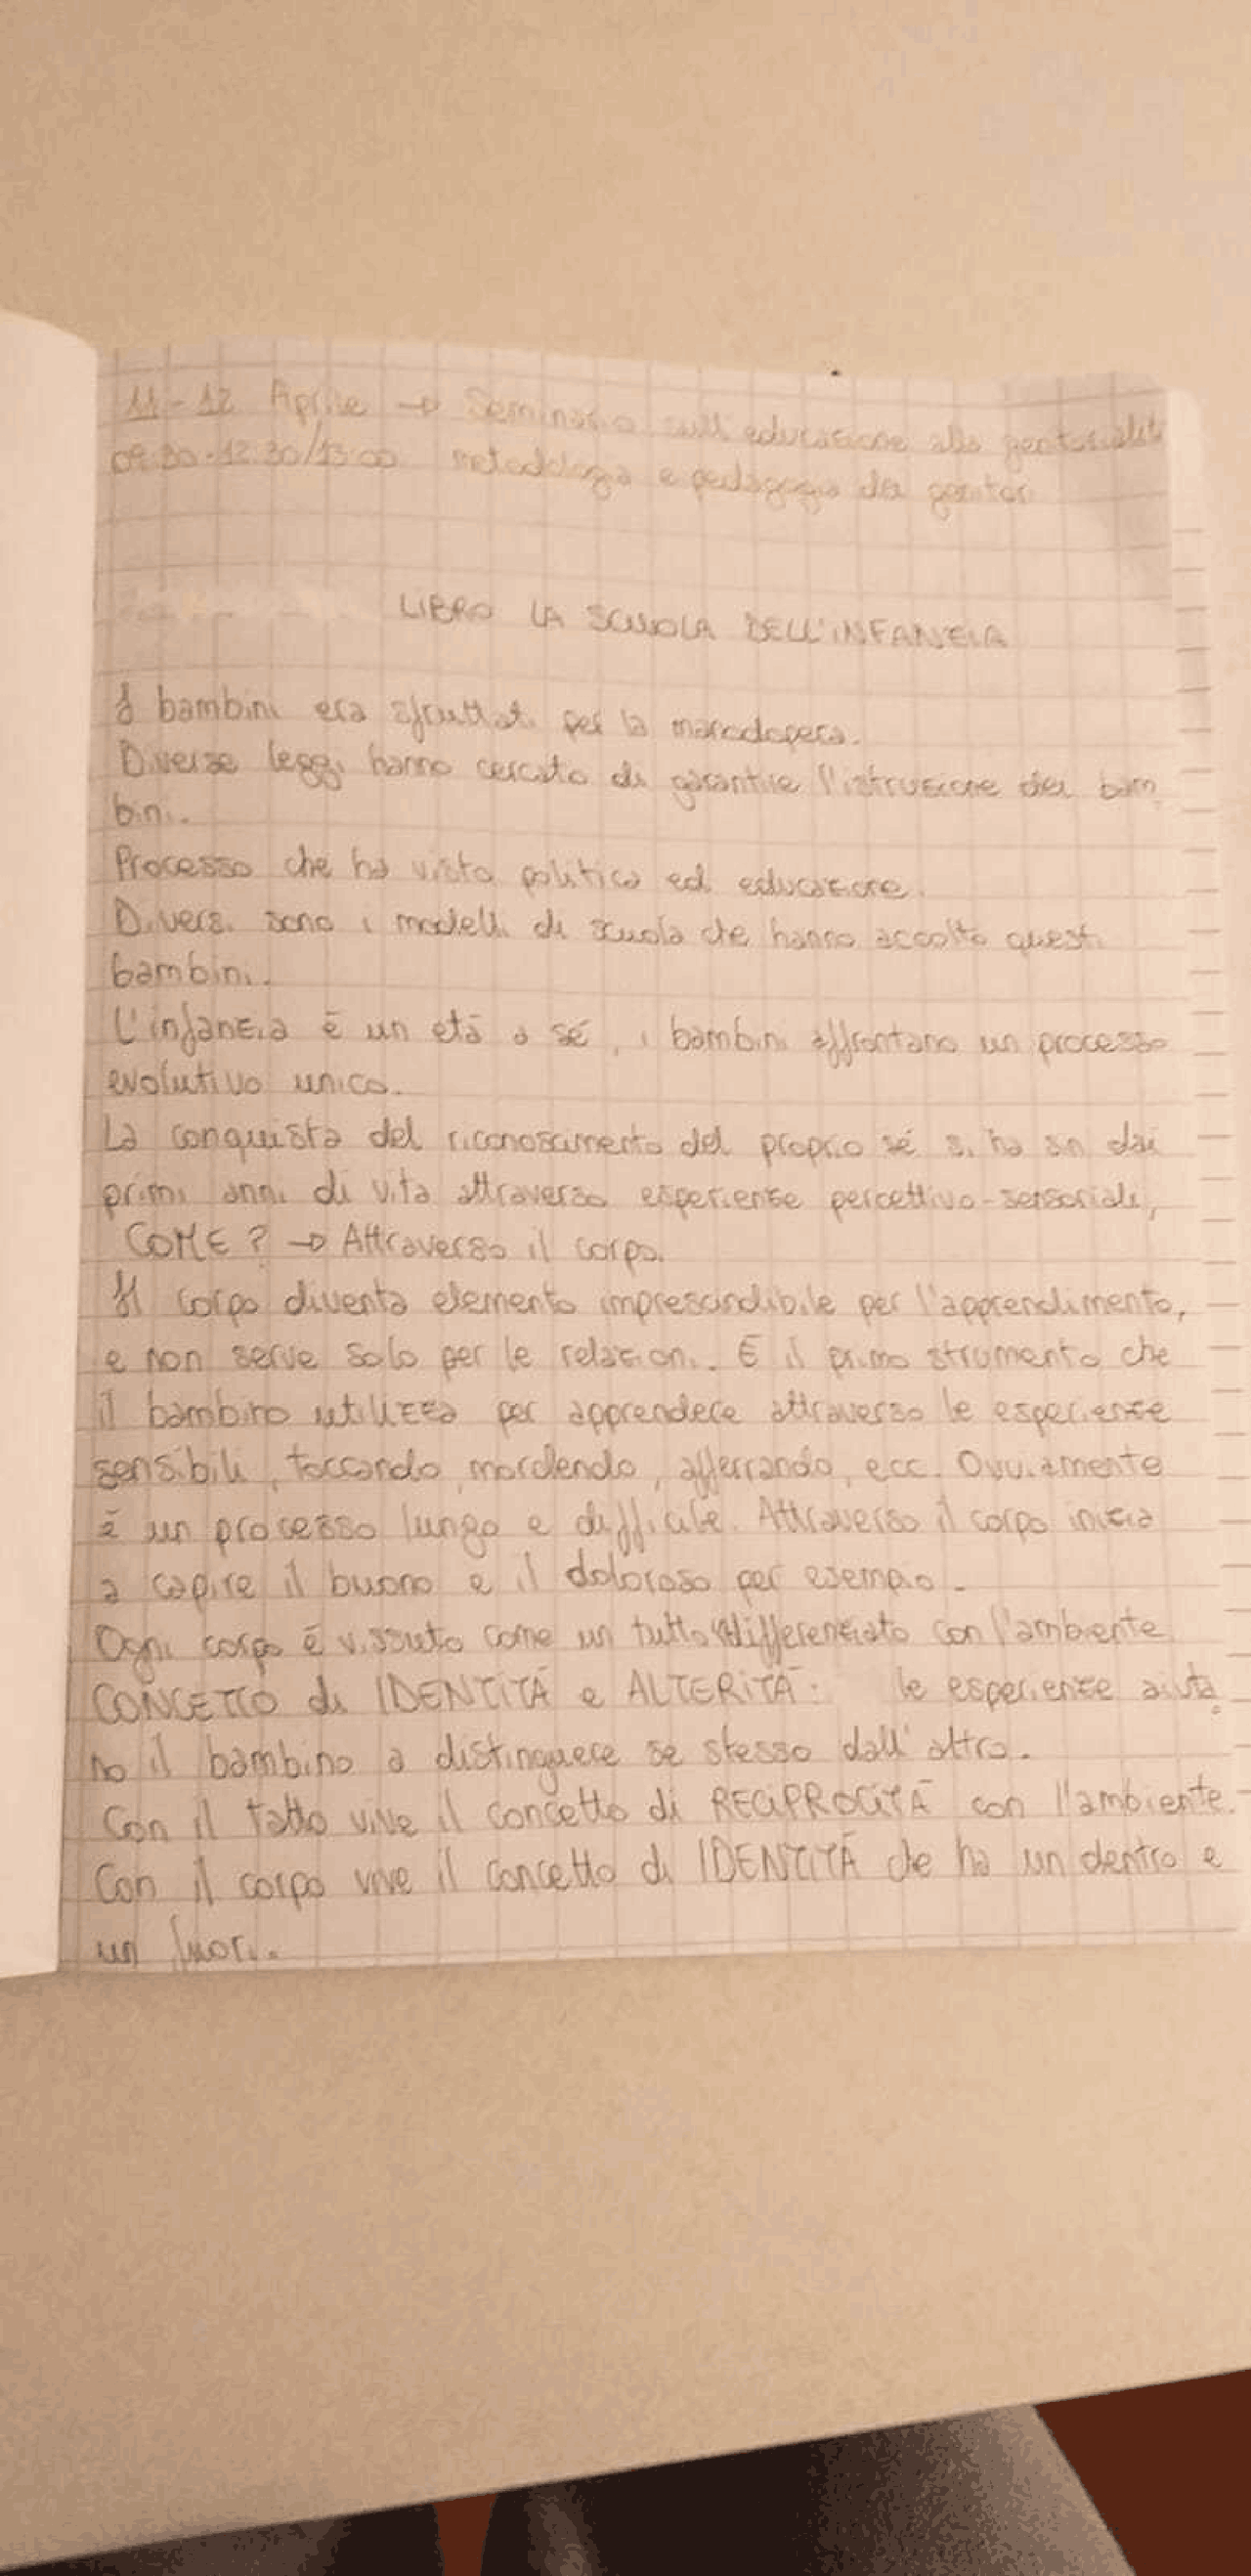 11-12 Aprile → Seminario sull'educazione alla genitorialità
09.30-12.30/13:00 metodologia e pedagogia dei genitori
LIBRO LA SCUOLA DELL'INFANZIA
I bambini era sfruttati per la manodopera.
Diverse leggi hanno cercato di garantire l'istruzione dei bam
bini.
Processo che ha visto politica ed educazione.
Diversi sono i modelli di scuola che hanno accolto questi
bambini.
L'infanzia é un etá a sé, i bambini affrontano un processo
evolutivo unico.
La conquista del riconoscimento del proprio sé si ha sin dai
primi anni di vita attraverso esperienze percettivo-sensoriali,
COME? → Attraverso il corpo.
Il corpo diventa elemento imprescindibile per l'apprendimento,
e non serve solo per le relazioni. E il primo strumento che
il bambino utilizza per apprendere attraverso le esperienze
sensibili, toccando, mordendo, afferrando, ecc. Ovviamente
é un processo lungo e difficile Attraverso il corpo inizia
a capire il buono e il doloroso per esempio.
Ogni corpo é vissuto come un tutto differenziato con l'ambiente
CONCETTO di IDENTITÁ e ALTERITÁ: le esperienze aiuta
no il bambino a distinguere se stesso dall'altro.
Con il tatto vive il concetto di RECIPROCITÁ con l'ambiente.
Con il corpo vive il concetto di IDENTITÁ che ha un dentro e
un fuori.